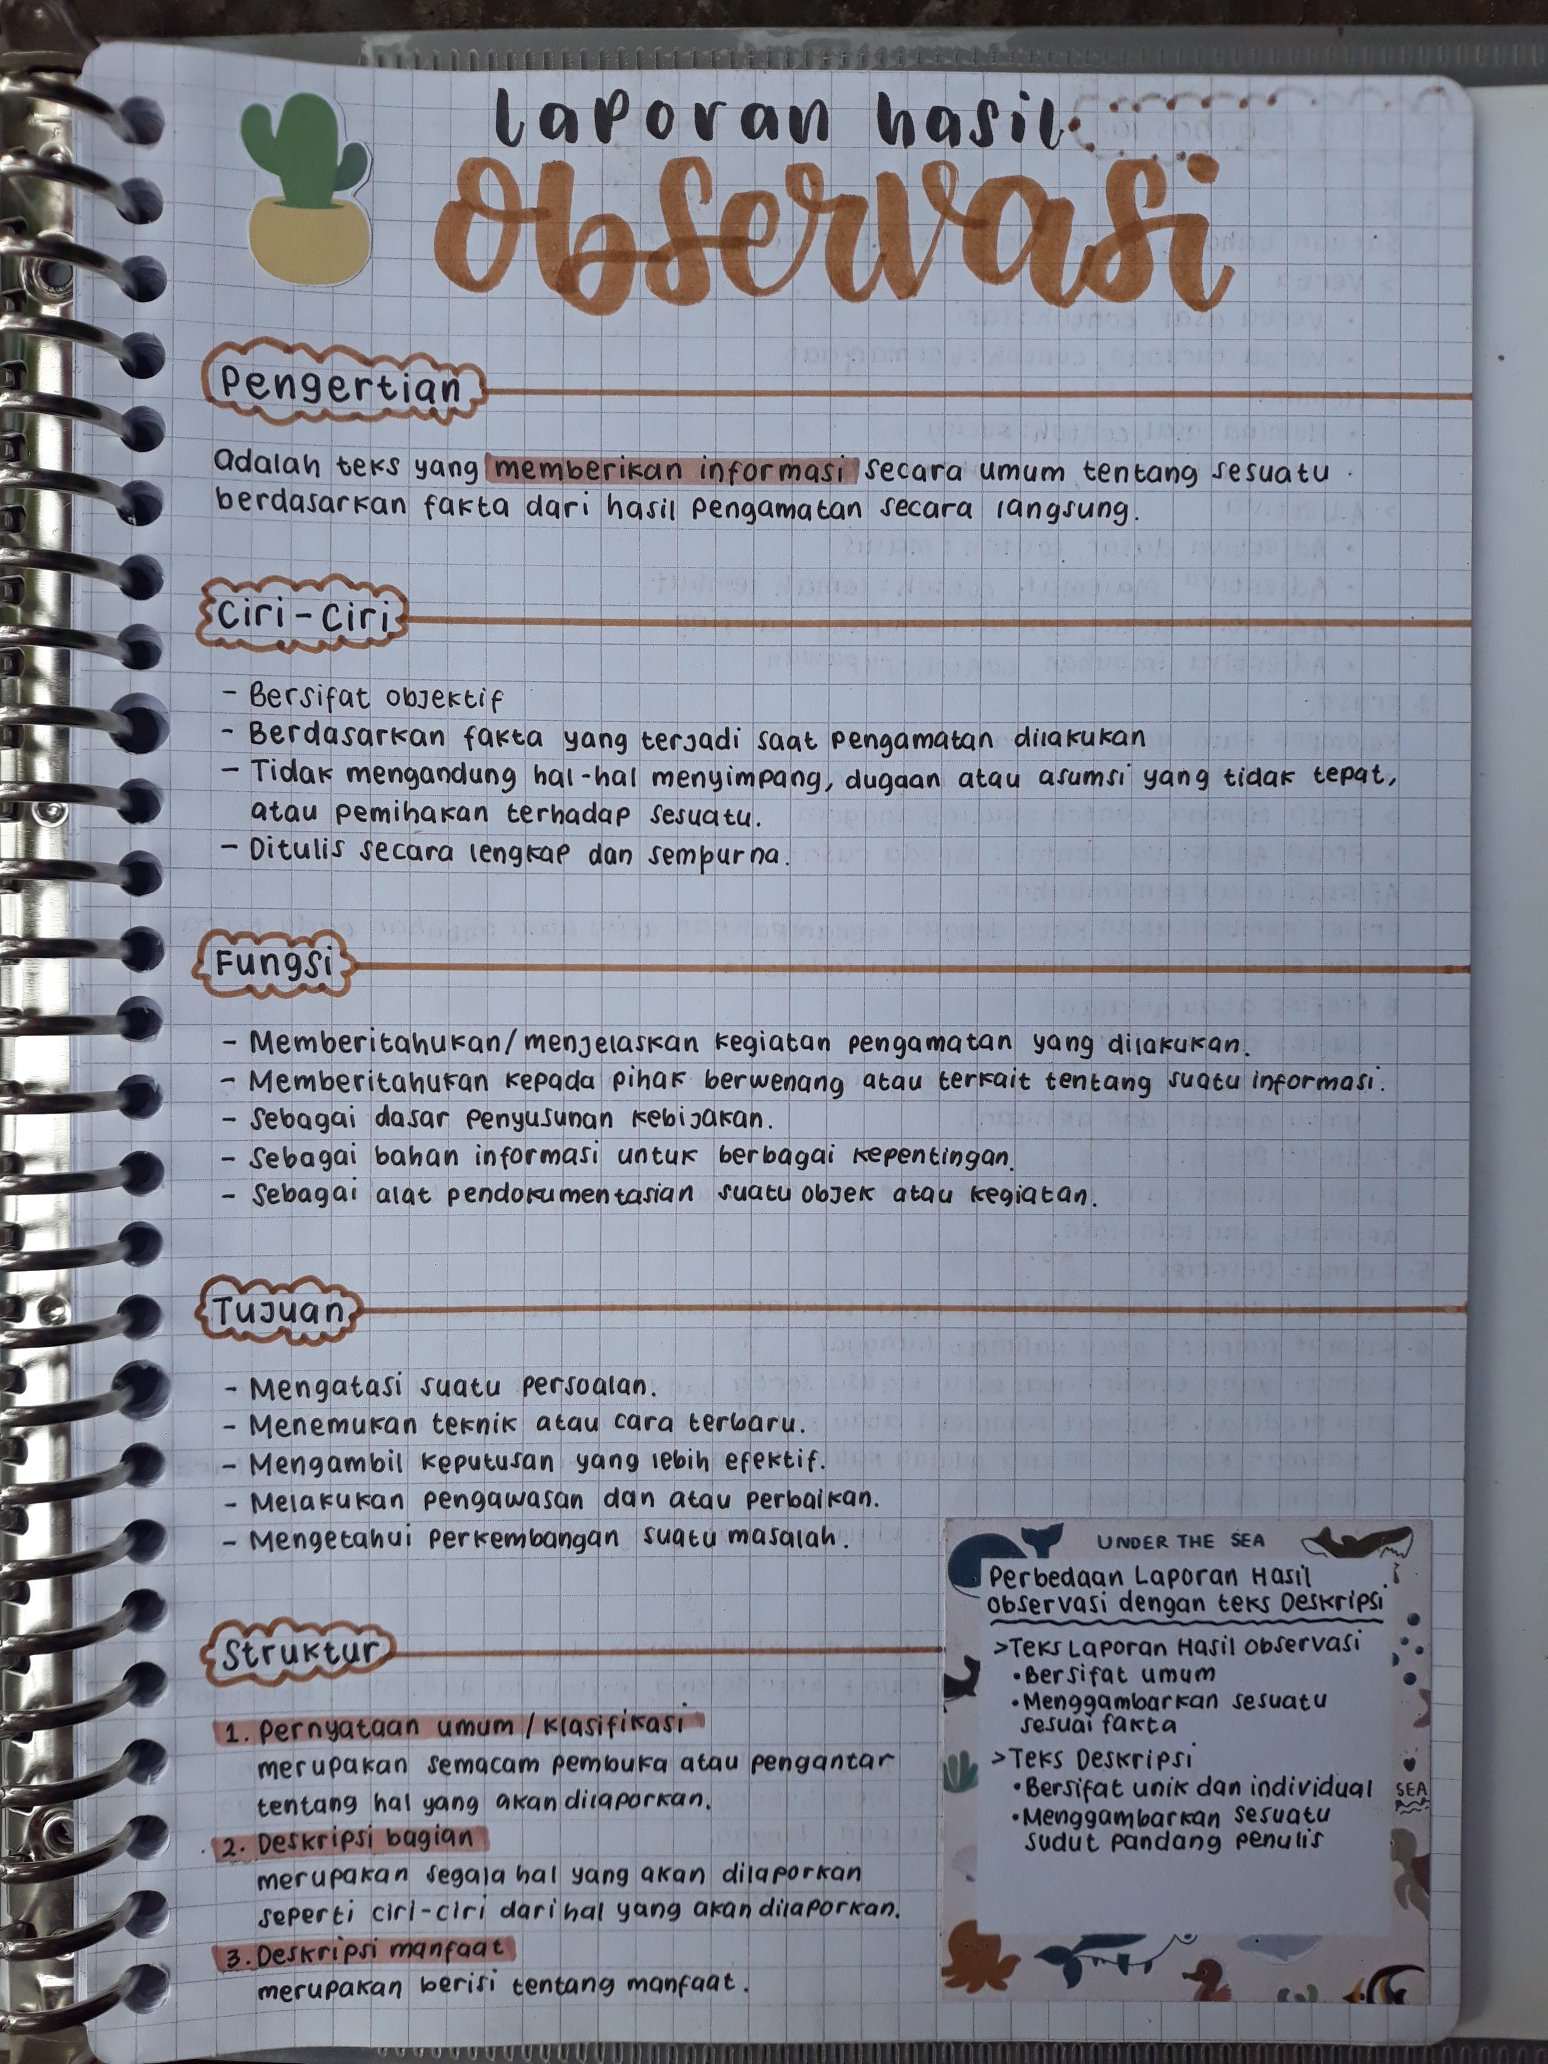 Laporan hasil
Observasi
Pengertian
Adalah teks yang memberikan informasi secara umum tentang sesuatu
berdasarkan fakta dari hasil pengamatan secara langsung.
Ciri-Ciri
- Bersifat objektif
- Berdasarkan fakta yang terjadi saat pengamatan dilakukan
- Tidak mengandung hal-hal menyimpang, dugaan atau asumsi yang tidak tepat,
atau pemihakan terhadap sesuatu.
- Ditulis secara lengkap dan sempurna.
Fungsi
- Memberitahukan/menjelaskan kegiatan pengamatan yang dilakukan.
- Memberitahukan kepada pihak berwenang atau terkait tentang suatu informasi.
- Sebagai dasar penyusunan kebijakan.
- Sebagai bahan informasi untuk berbagai kepentingan.
- Sebagai alat pendokumentasian suatu objek atau kegiatan.
Tujuan
- Mengatasi suatu persoalan.
- Menemukan teknik atau cara terbaru.
- Mengambil keputusan yang lebih efektif.
- Melakukan pengawasan dan atau perbaikan.
- Mengetahui perkembangan suatu masalah.
Struktur
1. Pernyataan umum / klasifikasi
merupakan semacam pembuka atau pengantar
tentang hal yang akan dilaporkan.
2. Deskripsi bagian
merupakan segala hal yang akan dilaporkan
seperti ciri-ciri dari hal yang akan dilaporkan.
3. Deskripsi manfaat
merupakan berisi tentang manfaat.
UNDER THE SEA
Perbedaan Laporan Hasil
Observasi dengan teks Deskripsi
> Teks Laporan Hasil Observasi
• Bersifat umum
• Menggambarkan sesuatu
sesuai fakta
> Teks Deskripsi
• Bersifat unik dan individual
• Menggambarkan sesuatu
sudut pandang penulis
SEA